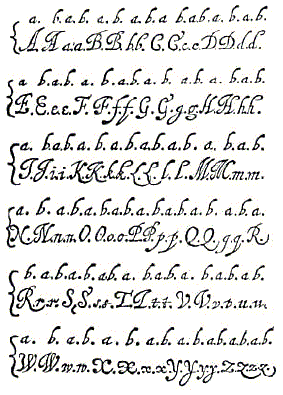 a. b.a.b. a. b. a.b.a b.a.b. b.a.b.
A.A a.a.B.B. b.b. C. C. c.c. D.D.d.d.
a b.a.b. a. b.a.b.a. b. a.b. a. b.a.b.
E.E.e.e. F. F. f.f. G. G. g.g. H.H.h.h.
a. b.a.b. a. b.a.b.a.b. a.b. a.b. a.b.
I.I.i.i. K.K.k.k. L.L. l. l. M.M.m.m.
a. b. a.b. a.b.a.b.a.b.a.b. a.b.a.
N. N.n.n. O. O.o.o. P.P. p.p. Q. Q. q.q. R.
b. a.b.a.b. a.b. a. b.a.b. a.b.a.b.
R.r.r. S.S.s.s. T.T. t.t. V.V.v.v.u.u.
a. b. a.b. a. b. a.b. a. b.a.b.a.b.a.b.
W.W.w.w. X. X. x.x. Y.Y.y.y. Z.z.z.z.